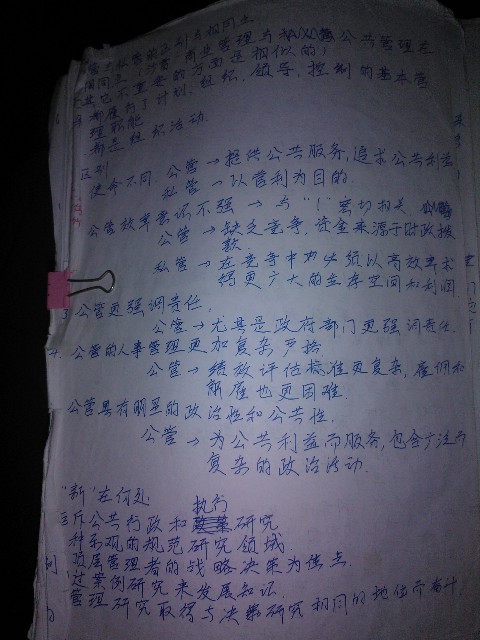 公管与私管的区别与相同点
相同点:万商 商业管理与公共管理在
其它不重要的方面是相似的!
都履行了计划,组织,领导,控制的基本管
理职能
都是组织活动.
区别
使命不同. 公管→提供公共服务,追求公共利益
私管→以营利为目的.
公管效率意识不强→与"1"密切相关
公管→缺乏竞争,资金来源于财政拨
款.
私管→在竞争中为必须以高效率求
得更广大的生存空间和利润
3 公管更强调责任.
公管→尤其是政府部门更强调责任
4. 公管的人事管理更加复杂严格.
公管→绩效评估标准更复杂,雇佣和
解雇也更困难
公管具有明显的政治性和公共性.
公管→为公共利益而服务,包含广泛而
复杂的政治活动.
"新"在何处
执行
公共行政和研究
种乐观的规范研究领域.
顶层管理者的战略决策为焦点
过案例研究来发展知识.
管理研究取得与决策研究相同的地位而有计